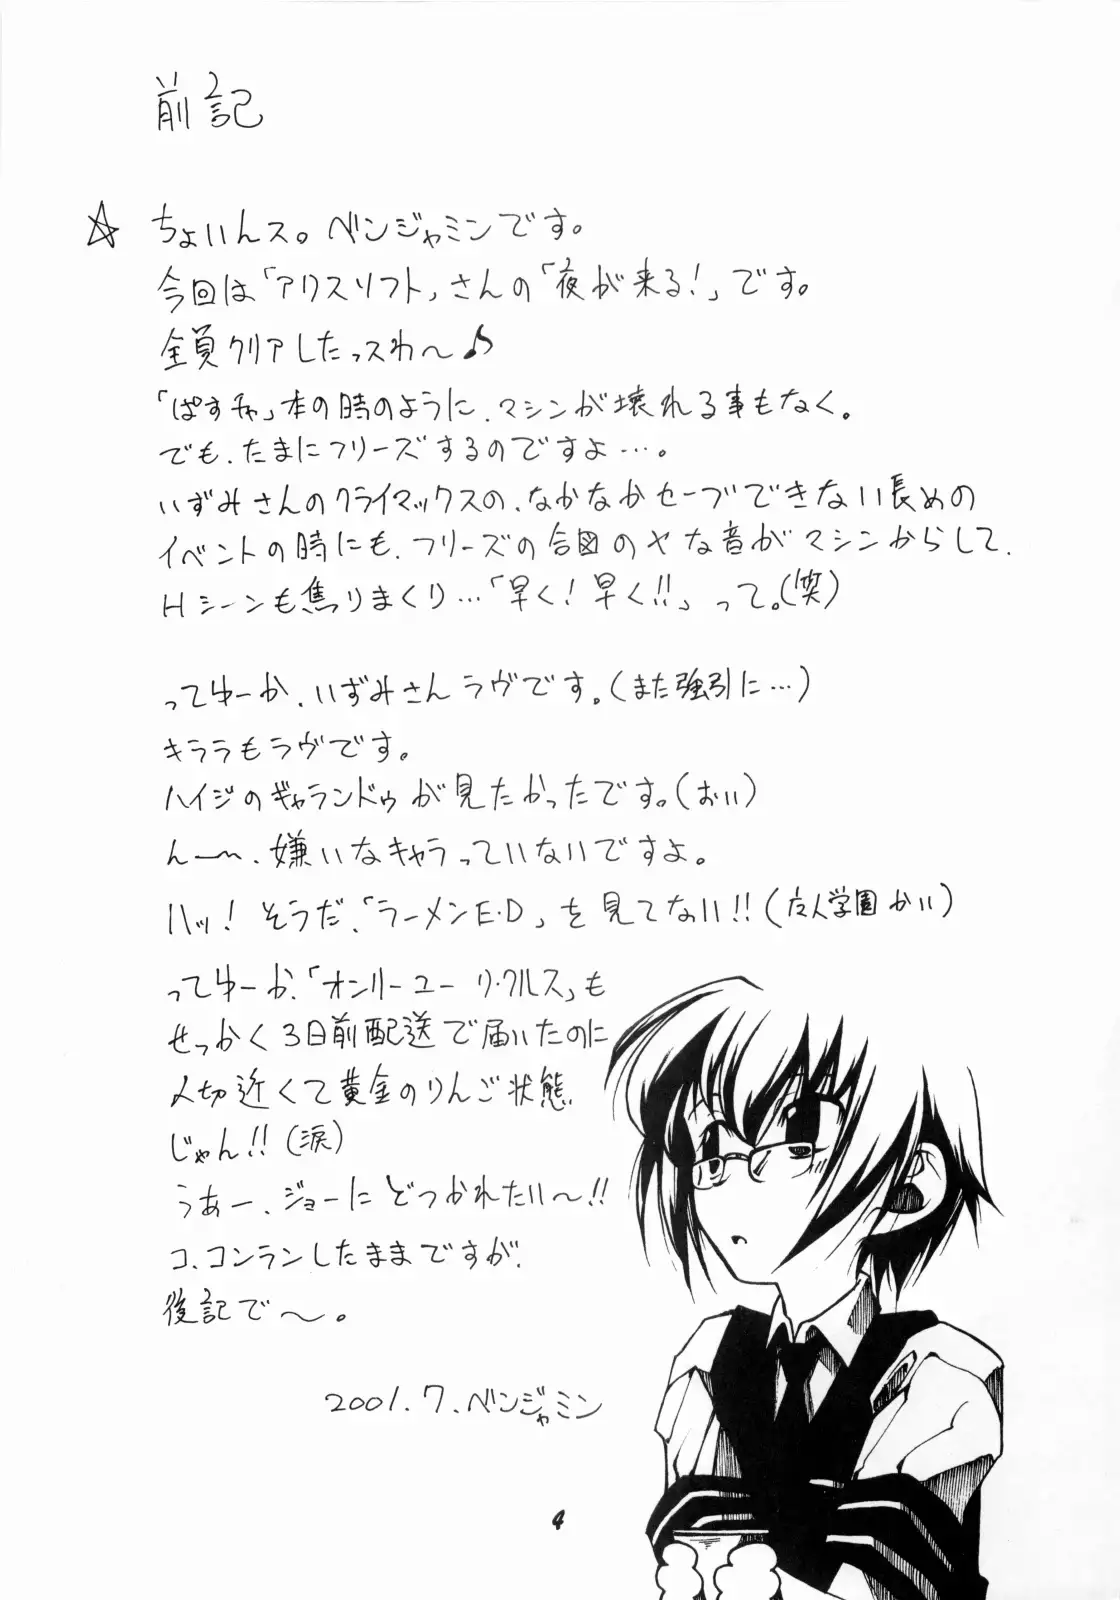 前記
☆ ちょいんス。ベンジャミンです。
今回は「アリスソフト」さんの「夜が来る!」です。
全員クリアしたっスわ〜♪
「ぱすチャ」本の時のように、マシンが壊れる事もなく。
でも、たまにフリーズするのですよ…。
いずみさんのクライマックスの、なかなかセーブできない長めの
イベントの時にも、フリーズの合図のヤな音がマシンからして、
Hシーンも焦りまくり…「早く!早く!!」って。(笑)
ってゆーか、いずみさんラヴです。(また強引に…)
キララもラヴです。
ハイジのギャランドゥが見たかったです。(おい)
ん〜、嫌いなキャラっていないですよ。
ハッ! そうだ、「ラーメンE・D」を見てない!!(友人学園かい)
ってゆーか、「オンリーユー リ・クルス」も
せっかく3日前配送で届いたのに
〆切近くて黄金のりんご状態
じゃん!!(涙)
うあー、ジョーにどつかれたい〜!!
コ、コンランしたままですが、
後記で〜。
2001.7.ベンジャミン
4